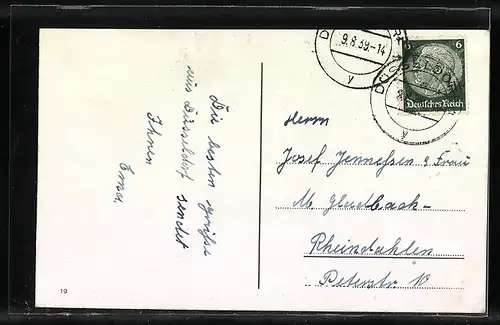 Die besten Grüsse
aus Düsseldorf sendet
Ihnen
Erna.
19
9.8.39.-14
y
DÜSSELDORF
y
6 6
Deutsches Reich
Herrn
Josef Jennessen & Frau
M. Gladbach-
Rheindahlen
Peterstr. 10